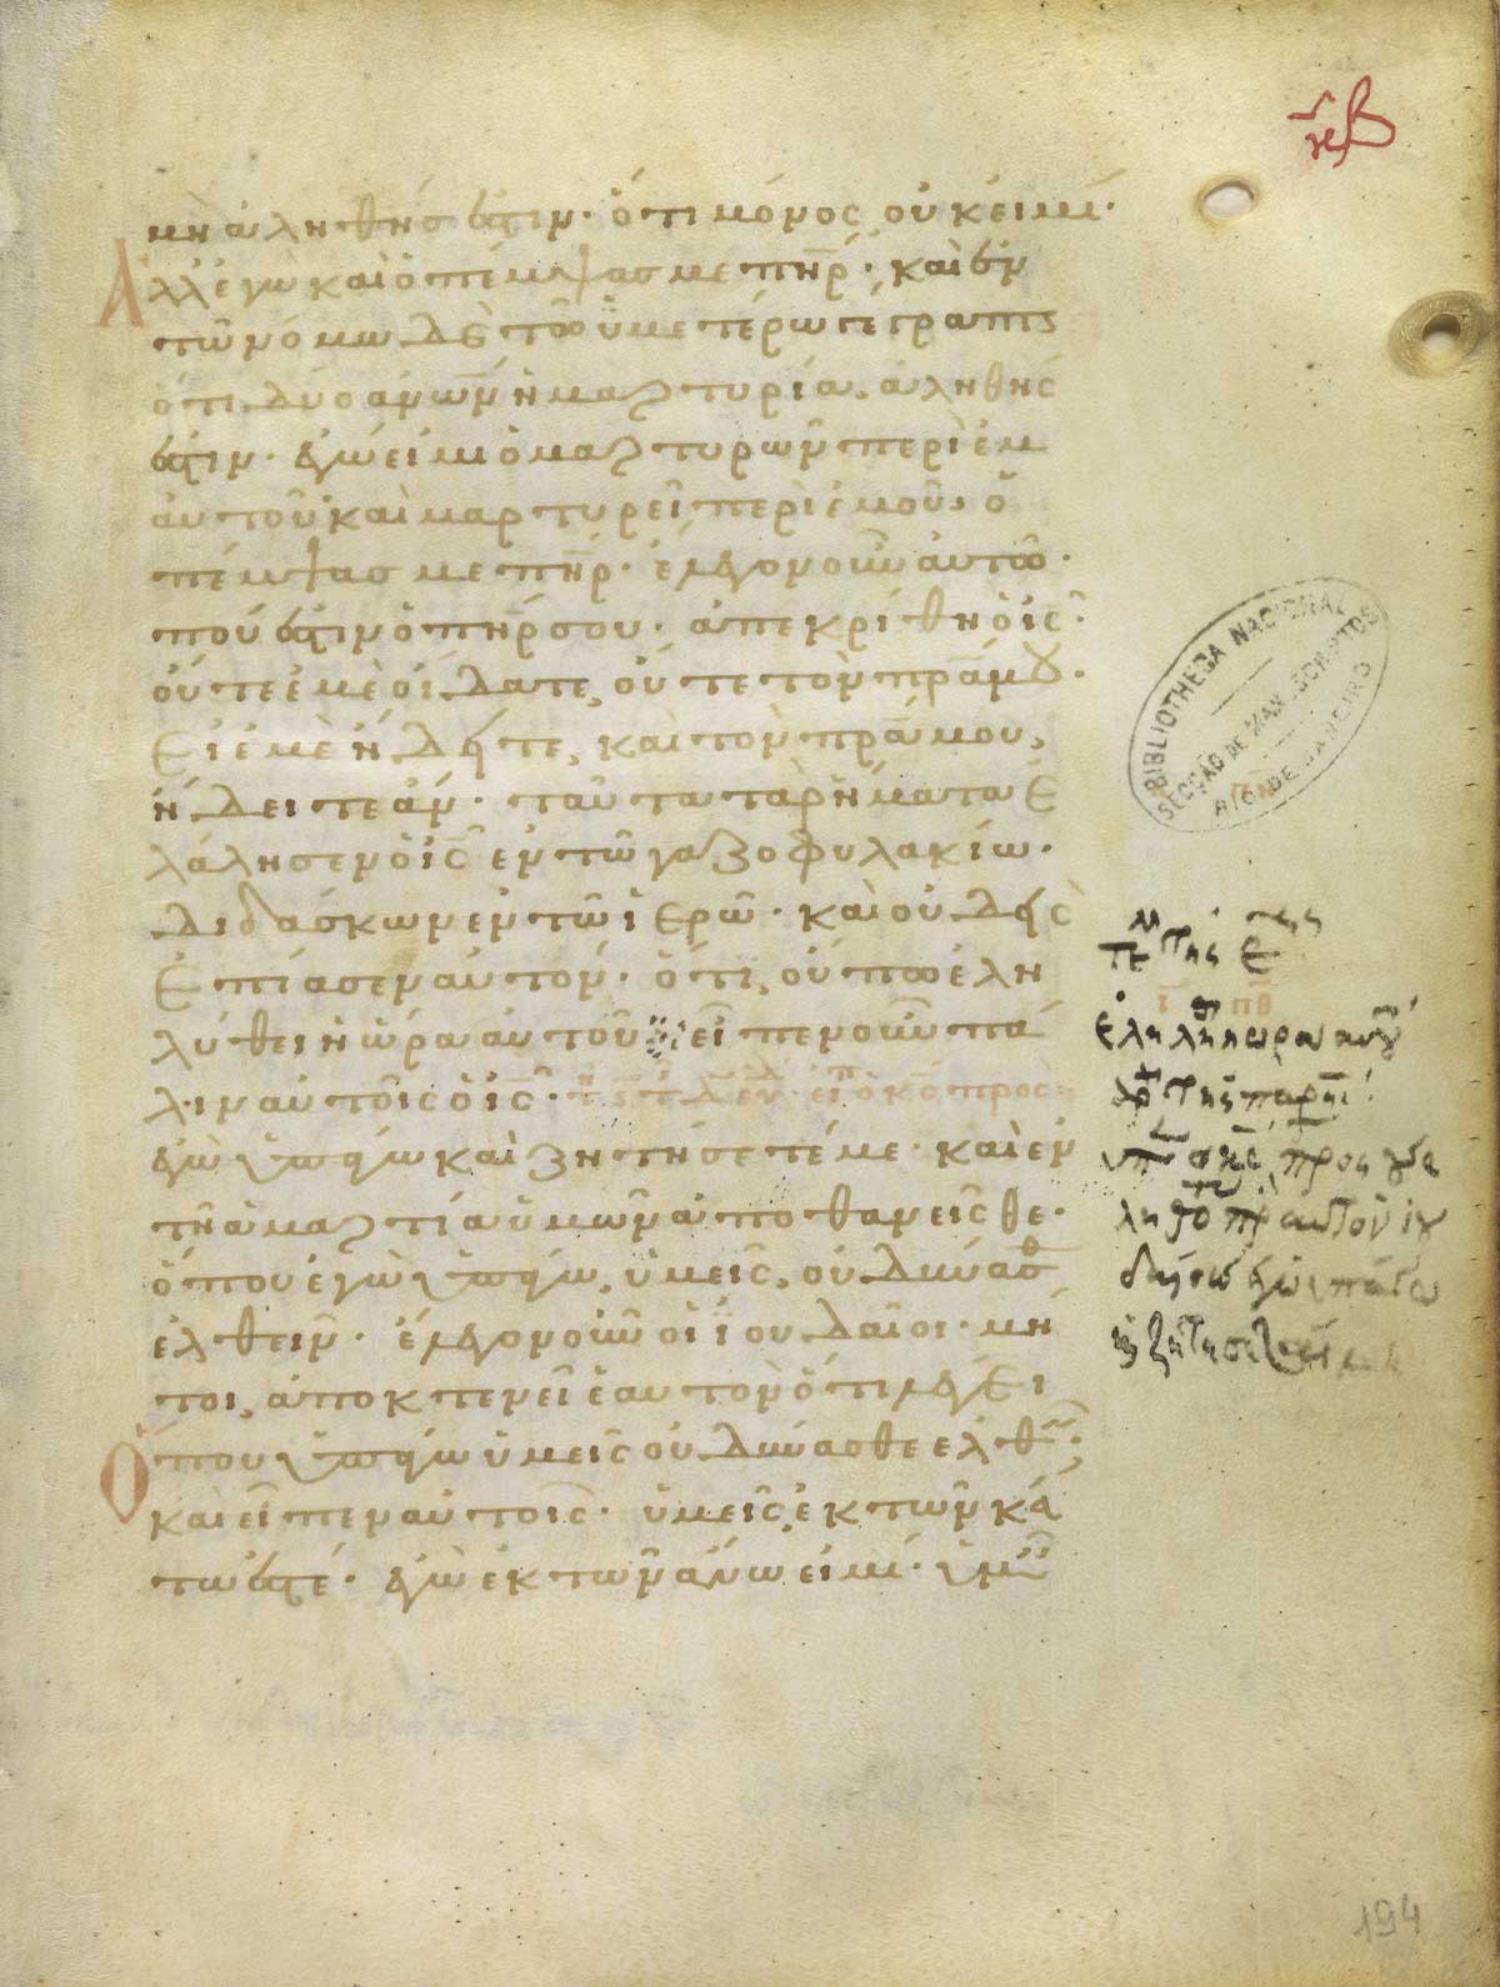 μὴ ἀληθής ἐστιν· ὅτι μόνος οὐκ εἰμί·
Ἀλλ' ἐγὼ καὶ ὁ πέμψας με πη̅ρ· καὶ ἐν
τῶ νόμω δὲ τῶ ὑμετέρω γέγραπται
ὅτι δύο ἀνων̅ ἡ μαρτυρία, ἀληθής
ἐστιν· ἐγώ εἰμι ὁ μαρτυρῶν περὶ ἐμ
αυτοῦ καὶ μαρτυρεῖ περὶ ἐμοῦ, ὁ
πέμψας με πη̅ρ· ἔλεγον οὖν αὐτῶ·
ποῦ ἐστιν ὁ πη̅ρ σου· ἀπεκρίθη ὁ ις̅·
οὔτε ἐμὲ οἴδατε, οὔτε τὸν πρα̅ μου·
Εἰ ἐμὲ ἤδειτε, καὶ τὸν πρα̅ μου,
ἤδειτε ἄν· ταῦτα τὰ ῥήματα ἐ
λάλησεν ὁ ις̅ ἐν τῶ γαζοφυλακίω·
διδάσκων ἐν τῶ ἱερῶ· καὶ οὐδεὶς
ἐπίασεν αὐτόν· ὅτι, οὔπω ἐλη
λύθει ἡ ὥρα αὐτοῦ εἶπεν οὖν πά
λιν αὐτοῖς ὁ ις̅·
ἐγὼ ὑπάγω καὶ ζητήσετέ με· καὶ ἐν
τῆ ἁμαρτία ὑμῶν ἀποθανεῖσθε·
ὅπου ἐγὼ ὑπάγω, ὑμεῖς, οὐ δύνασθ
ἐλθεῖν· ἔλεγον οὖν οἱ ἰουδαῖοι· μή
τοι, ἀποκτενεῖ ἑαυτὸν ὅτι λέγει
Ὅπου ὑπάγω ὑμεῖς οὐ δύνασθε ἐλθεῖν;
καὶ εἶπεν αὐτοῖς· ὑμεῖς, ἐκ τῶν κά
τω ἐστέ· ἐγὼ ἐκ τῶν ἄνω εἰμί· ὑμεῖς
BIBLIOTHECA NACIONAL
SECÇÃO DE MANUSCRIPTOS
RIO DE JANEIRO
194